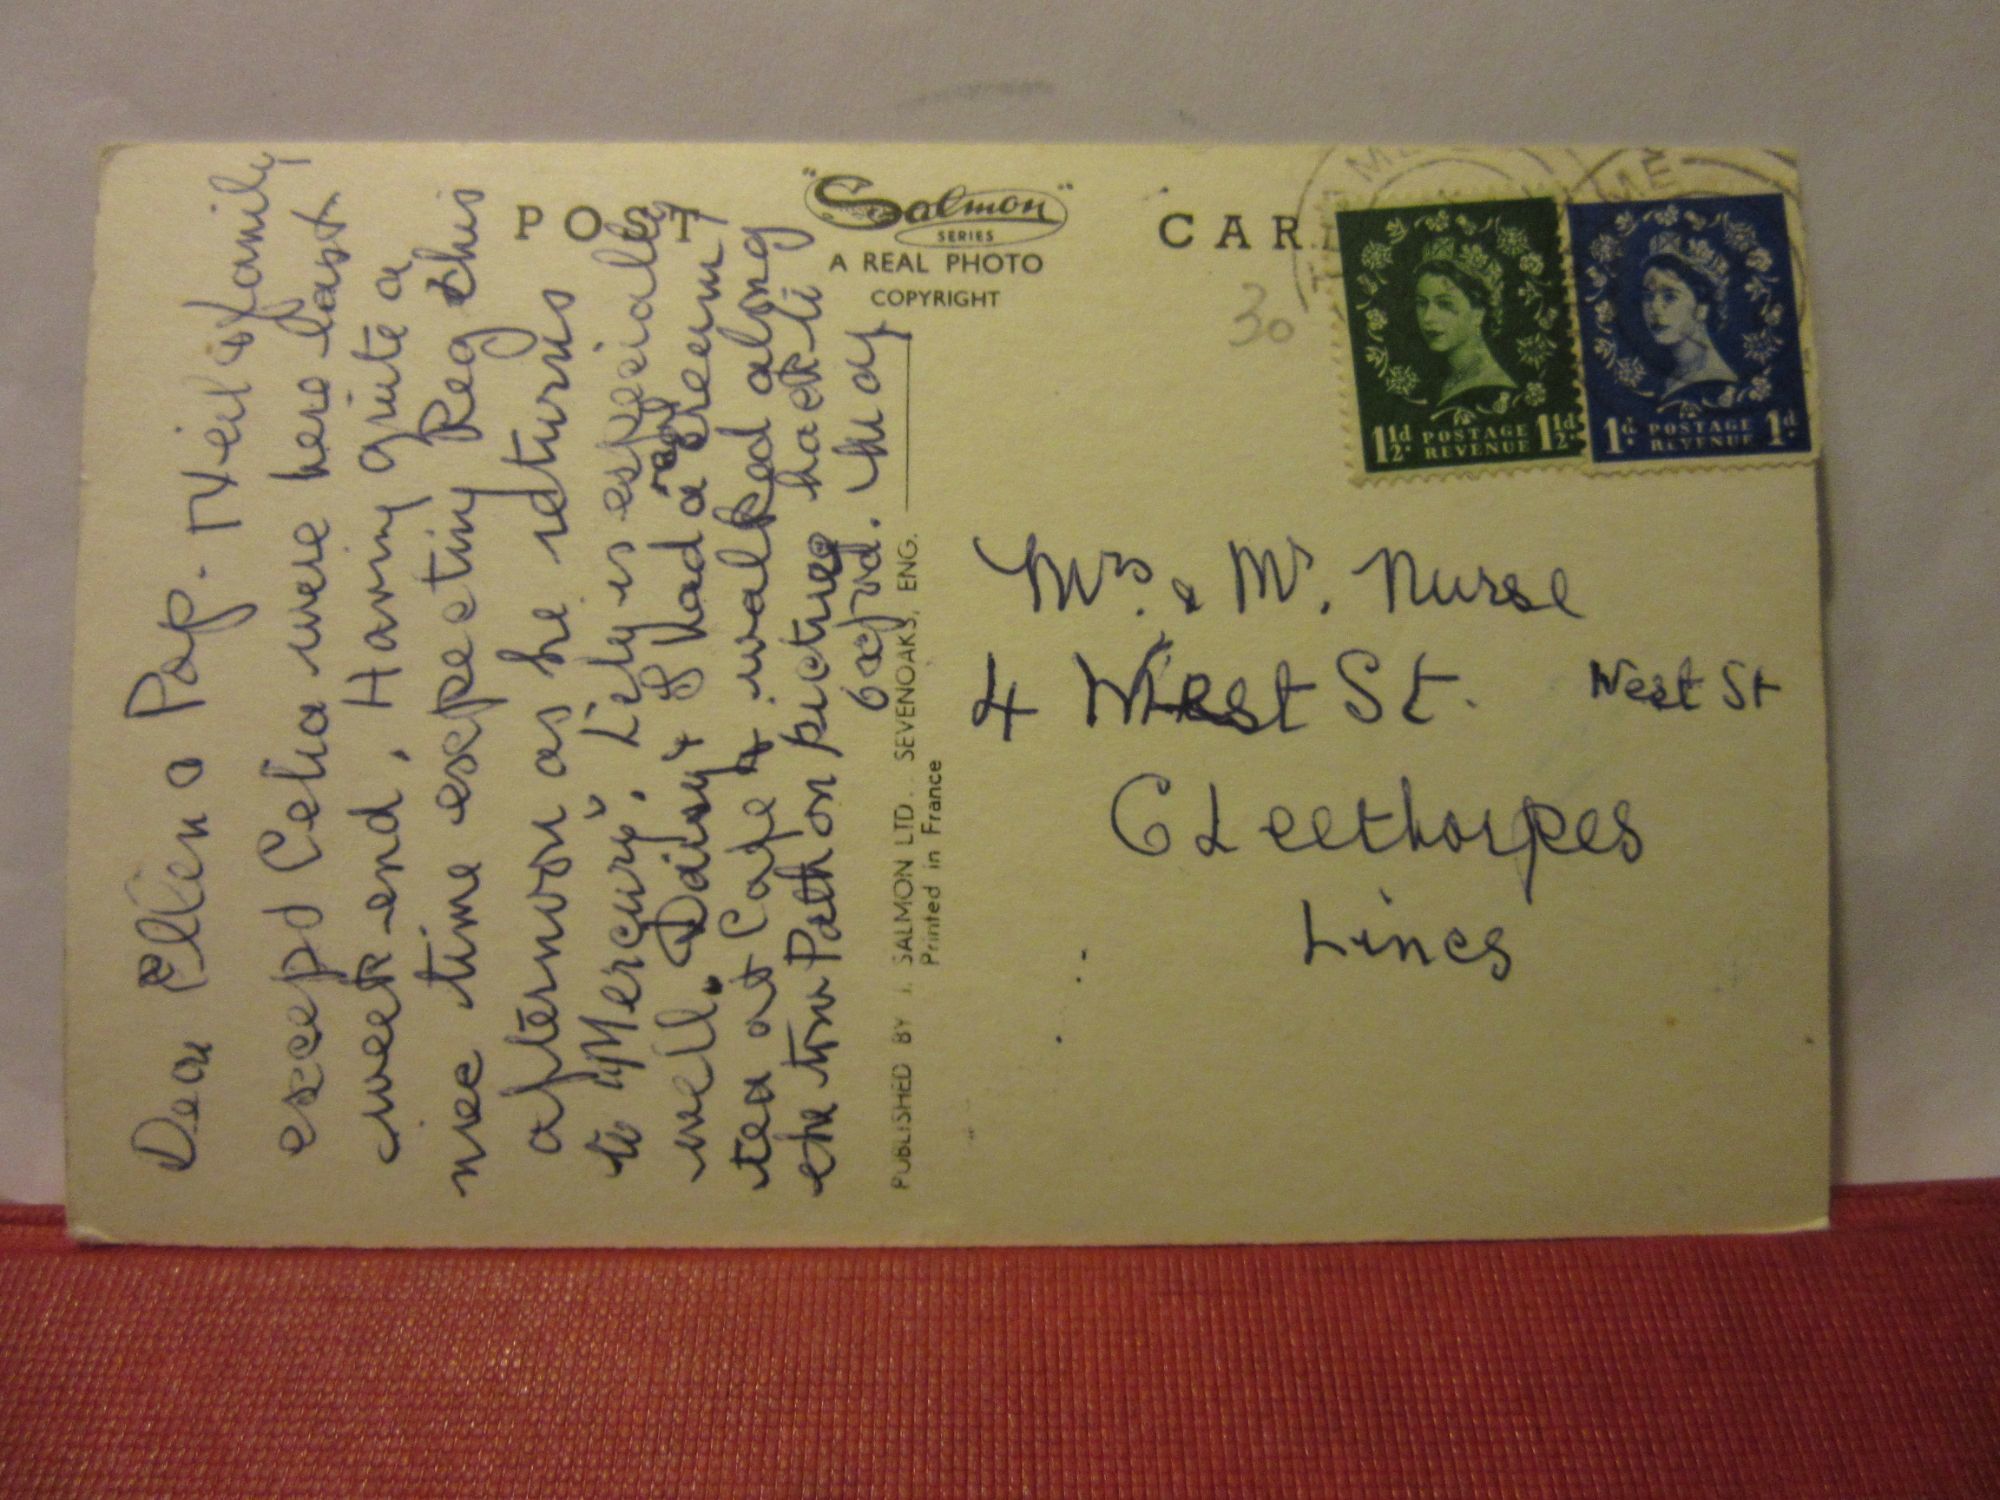 POST
"Salmon"
SERIES
A REAL PHOTO
COPYRIGHT
CAR
30
1½d POSTAGE REVENUE 1½d
1d POSTAGE REVENUE 1d
Dear Ellen & Pop. & family
except Celia were here last
week-end, Having quite a
nice time expecting Reg this
afternoon as he returns
to "Mercury". Lily is especially
well. Daisy & I had a real cream
tea at Cafe & walked along
the tow Path on picture back to
card. May
PUBLISHED BY J. SALMON LTD., SEVENOAKS, ENG.
Printed in France
Mrs. & Mr. Nurse
4 West St. West St
CLeethorpes
Lincs